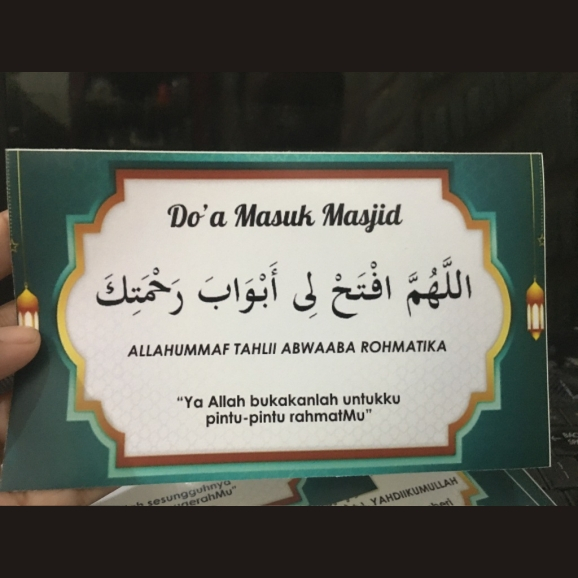 Do'a Masuk Masjid
اللَّهُمَّ افْتَحْ لِى أَبْوَابَ رَحْمَتِكَ
ALLAHUMMAF TAHLII ABWAABA ROHMATIKA
“Ya Allah bukakanlah untukku
pintu-pintu rahmatMu”
sesungguhnya
YAHDIIKUMULLAH